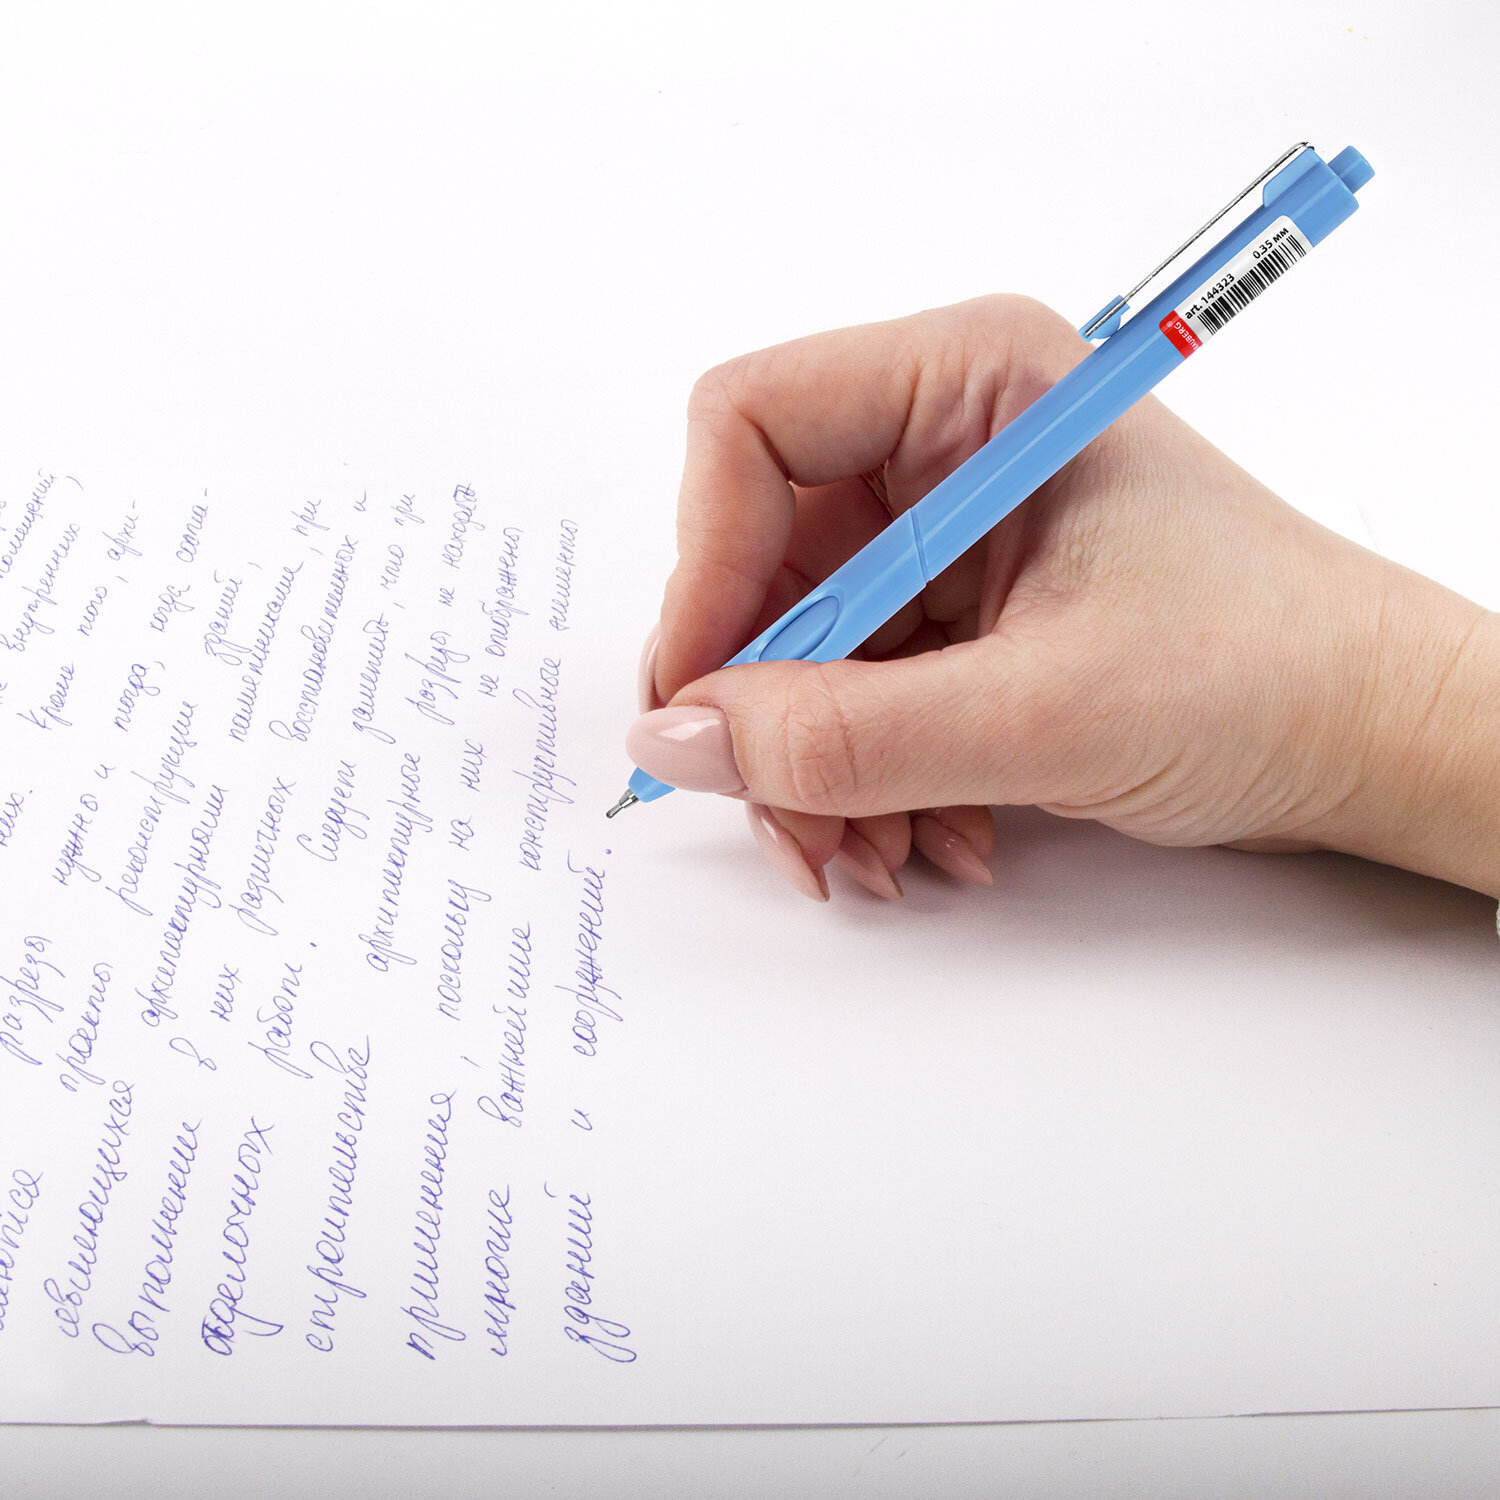 помещений
внутренних,
них. Кроме того, архи-
разрезы нужно и тогда, когда соста-
вляются проекты реконструкции зданий,
являющихся архитектурными памятниками, при
выполнении в них различных восстановительных и
отделочных работ. Следует заметить, что при
строительства архитектурные разрезы не находят
применения, поскольку на них не отображены
многие важнейшие конструктивные элементы
зданий и сооружений.
art. 144323 0.35 мм